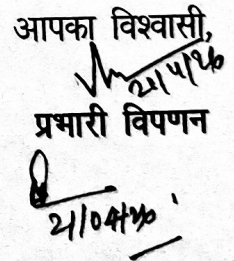 आपका विश्वासी,
21/4/20
प्रभारी विपणन
21/04/20